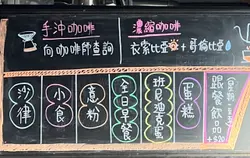 手沖咖啡
向咖啡師查詢
濃縮咖啡
衣索比亞+哥倫比亞
沙律
小食
意粉
全日早餐
班尼迪克蛋
蛋糕
跟餐飲品
+$20